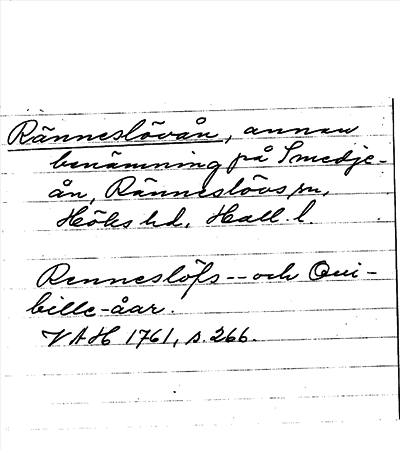 Ränneslövån, annan
benämning på Smedje-
ån, Ränneslövs sn,
Höks hd, Hall. l.
Renneslöfs -- och Qui-
bille-åar.
VAH 1761, s. 266.